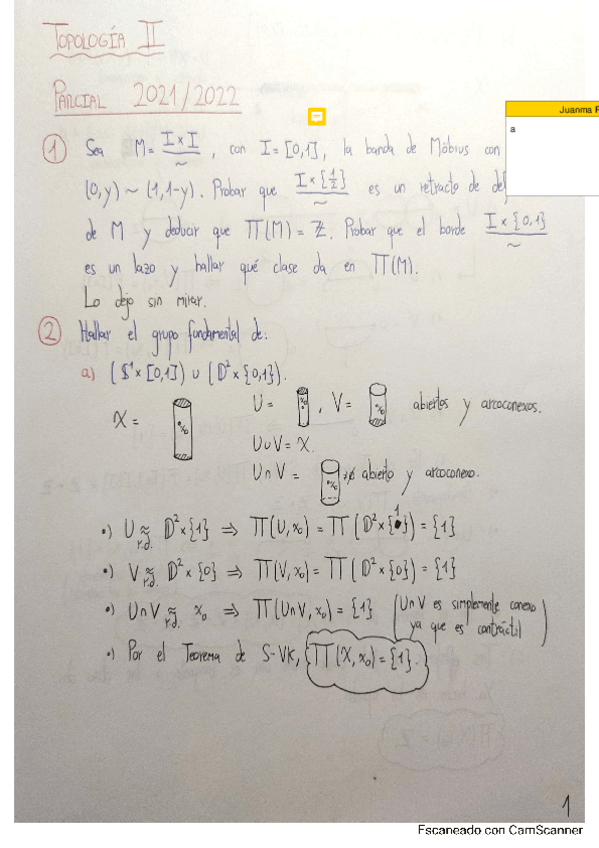 TOPOLOGÍA II
PARCIAL 2021/2022
Juanma
a
1 Sea M = I×I/~, con I = [0,1], la banda de Möbius con
(0,y) ~ (1,1-y). Probar que I×{1/2}/~ es un retracto de
de M y deducir que Π(M) = ℤ. Probar que el borde I×{0,1}/~
es un lazo y hallar qué clase da en Π(M).
Lo dejo sin mirar.
2 Hallar el grupo fundamental de:
a) (S¹×[0,1]) ∪ (D²×{0,1}).
X = x₀ U = x₀ , V = x₀ abiertos y arcoconexos.
U∪V = X.
U∩V = x₀ ≠∅ abierto y arcoconexo.
•) U ≈ r.d. D²×{1} ⇒ Π(U,x₀) = Π(D²×{1}) = {1}
•) V ≈ r.d. D²×{0} ⇒ Π(V,x₀) = Π(D²×{0}) = {1}
•) U∩V ≈ r.d. x₀ ⇒ Π(U∩V,x₀) = {1} (U∩V es simplemente conexo
ya que es contráctil)
•) Por el Teorema de S-VK, Π(X,x₀) = {1}.
1
Escaneado con CamScanner